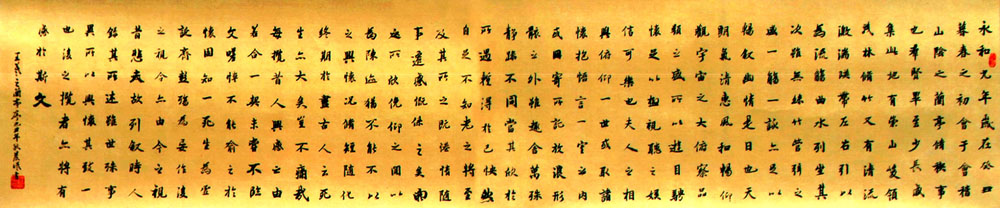 永和九年歲在癸丑
暮春之初會于會稽
山陰之蘭亭脩稧事
也羣賢畢至少長咸
集此地有崇山峻領
茂林脩竹又有清流
激湍暎帶左右引以
為流觴曲水列坐其
次雖無絲竹管弦之
盛一觴一詠亦足以
暢敘幽情是日也天
朗氣清惠風和暢仰
觀宇宙之大俯察品
類之盛所以遊目騁
懷足以極視聽之娛
信可樂也夫人之相
與俯仰一世或取諸
懷抱悟言一室之內
或因寄所託放浪形
骸之外雖趣舍萬殊
靜躁不同當其欣於
所遇暫得於己怏然
自足不知老之將至
及其所之既惓情隨
事遷感慨係之矣向
之所欣俛仰之間以
為陳迹猶不能不以
之興懷況脩短隨化
終期於盡古人云死
生亦大矣豈不痛哉
每攬昔人興感之由
若合一契未嘗不臨
文嗟悼不能喻之於
懷固知一死生為虛
誕齊彭殤為妄作後
之視今亦由今之視
昔悲夫故列敘時人
錄其所述雖世殊事
異所以興懷其致一
也後之攬者亦將有
感於斯文
王羲之蘭亭序